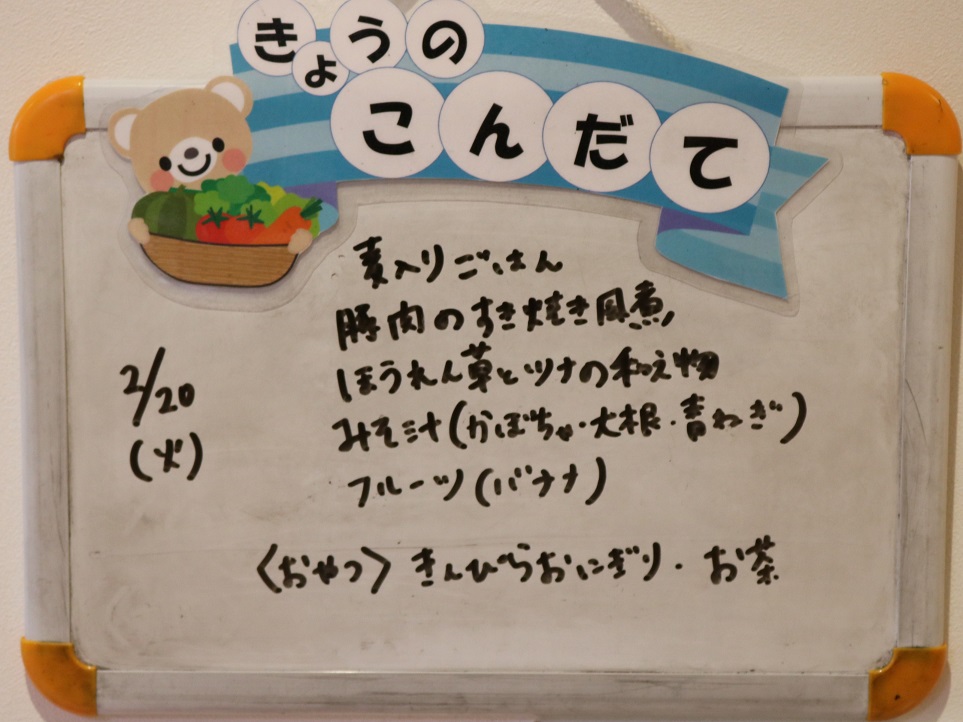 きょうの
こんだて
麦入りごはん
豚肉のすき焼き風煮
2/20
ほうれん草とツナの和え物
みそ汁(かぼちゃ・大根・青ねぎ)
(火)
フルーツ(バナナ)
〈おやつ〉きんぴらおにぎり・お茶